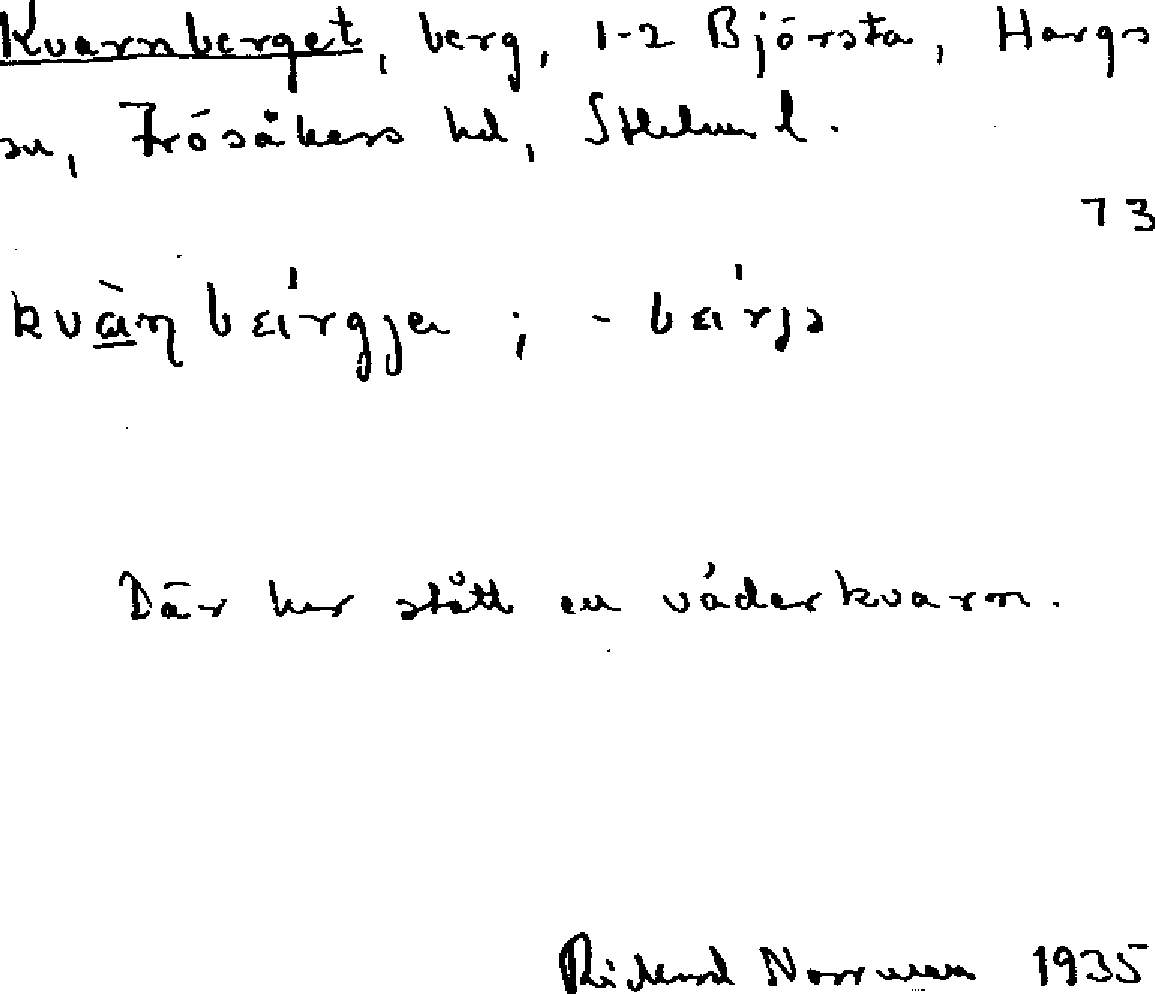 Kvarnberget, berg, 1-2 Björsta, Hargs
sn, Frösåkers hd, Sthlms l.
73
kvàɳ bærgjen ; - bærjə
Där har stått en väderkvarn.
Rickard Norrman 1935